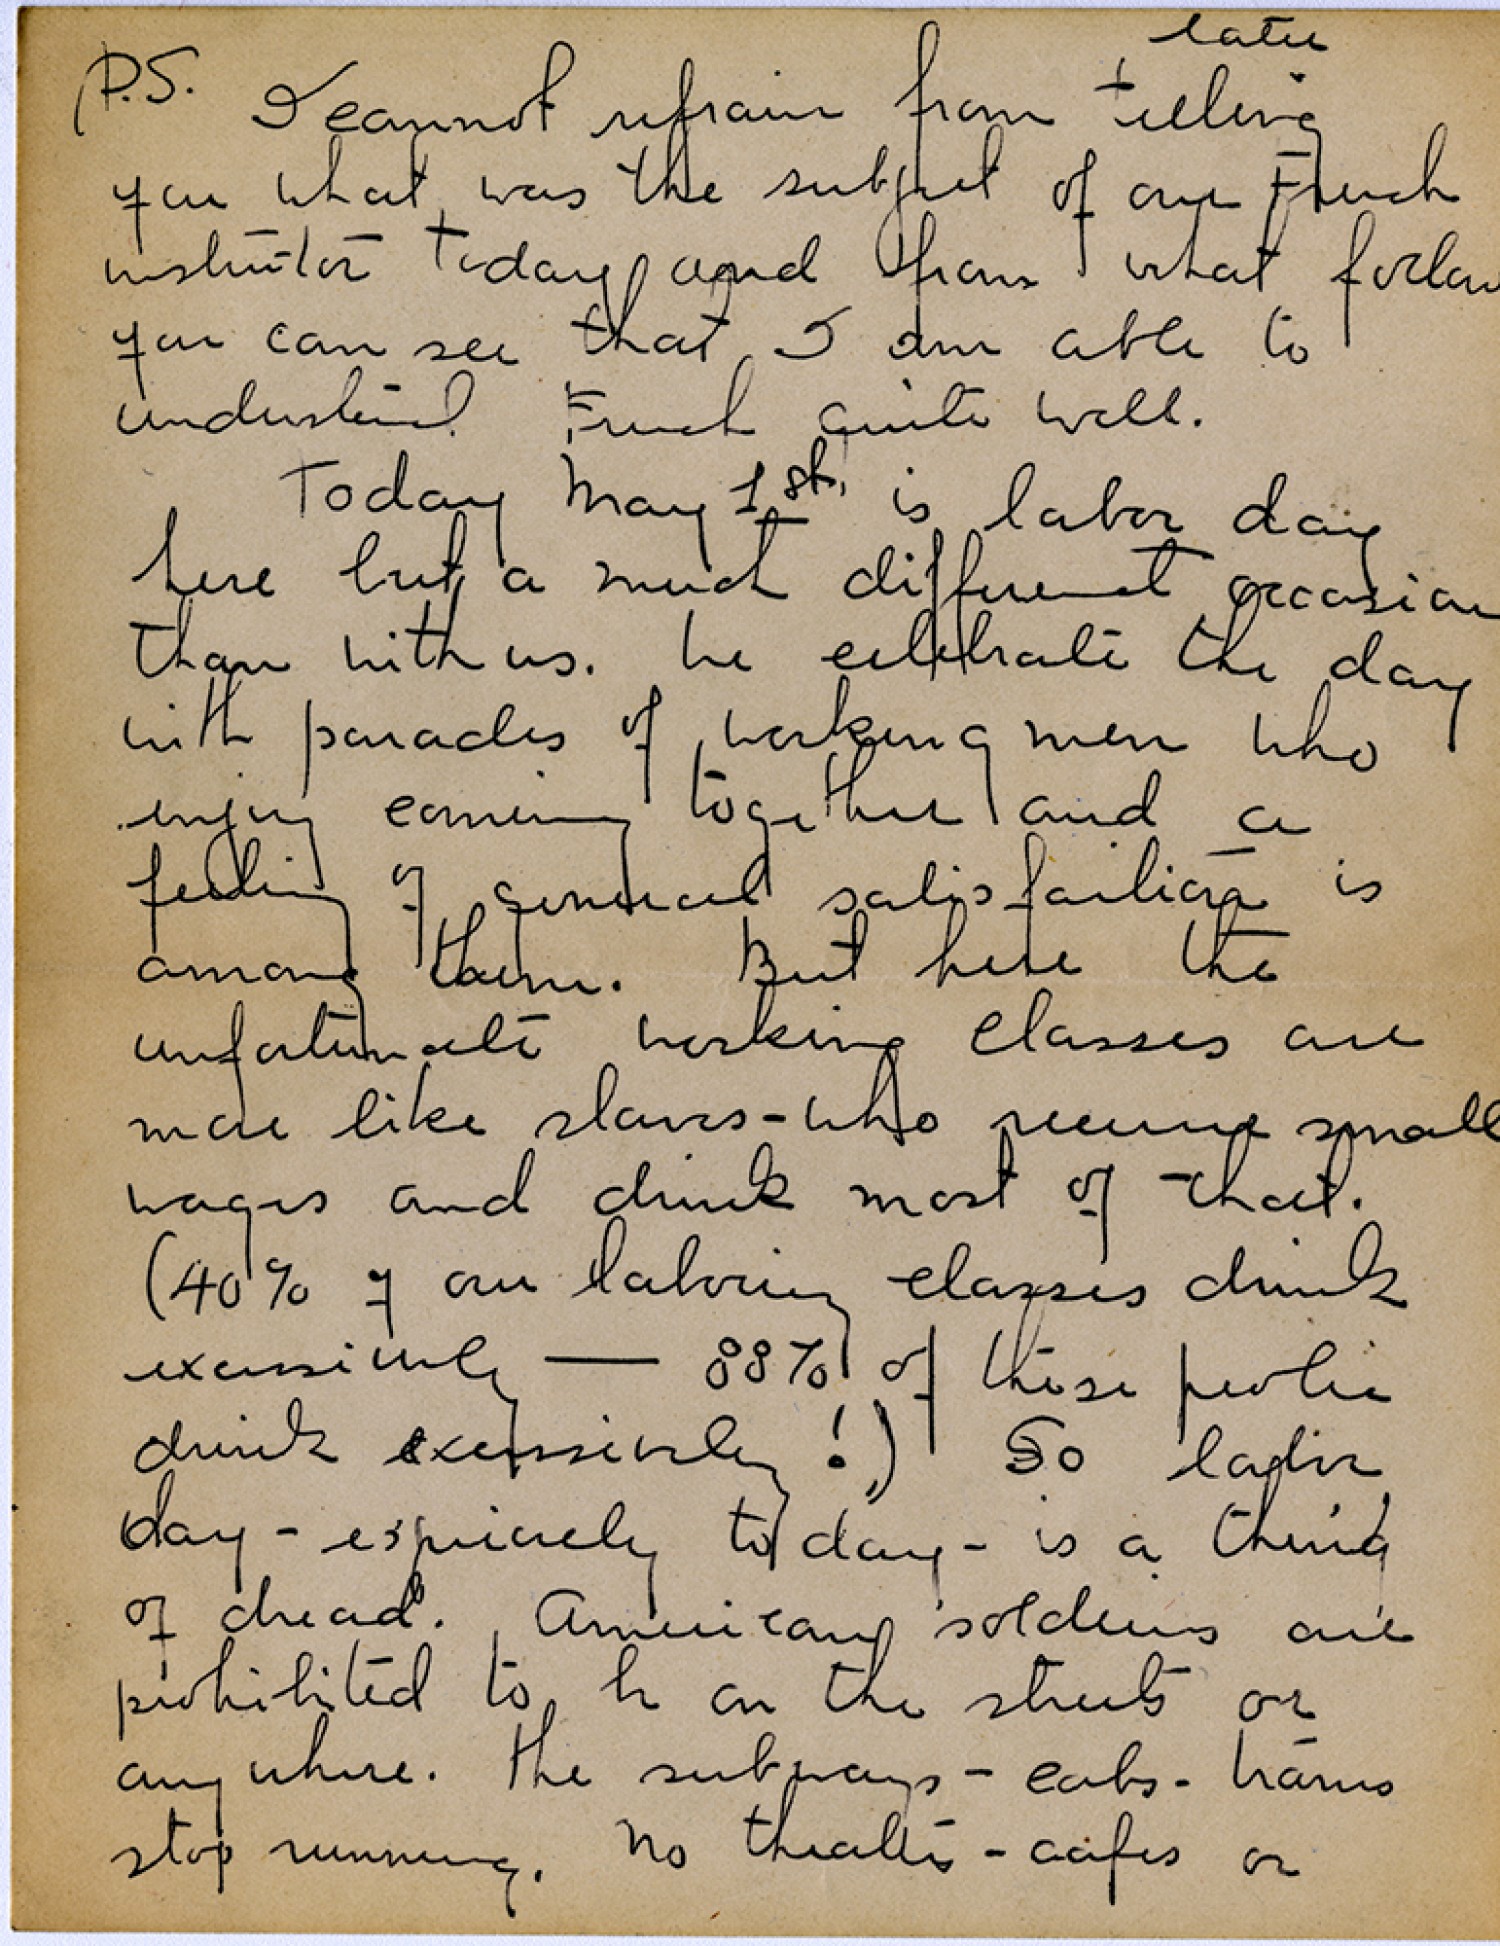 later
P.S. I cannot refrain from telling
you what was the subject of our French
instructor today and from what follow
you can see that I am able to
understand French quite well.
Today May 1st, is labor day
here but a much different occasion
than with us. We celebrate the day
with parades of working men who
enjoy coming together and a
feeling of general satisfaction is
among them. But here the
unfortunate working classes are
more like slaves - who receive small
wages and drink most of that.
(40% of our laboring classes drink
excessively — 88% of these people
drink excessively!) So labor
day - especially today - is a thing
of dread. American soldiers are
prohibited to be on the streets or
anywhere. The subways - cabs - trams
stop running. No theatres - cafes or